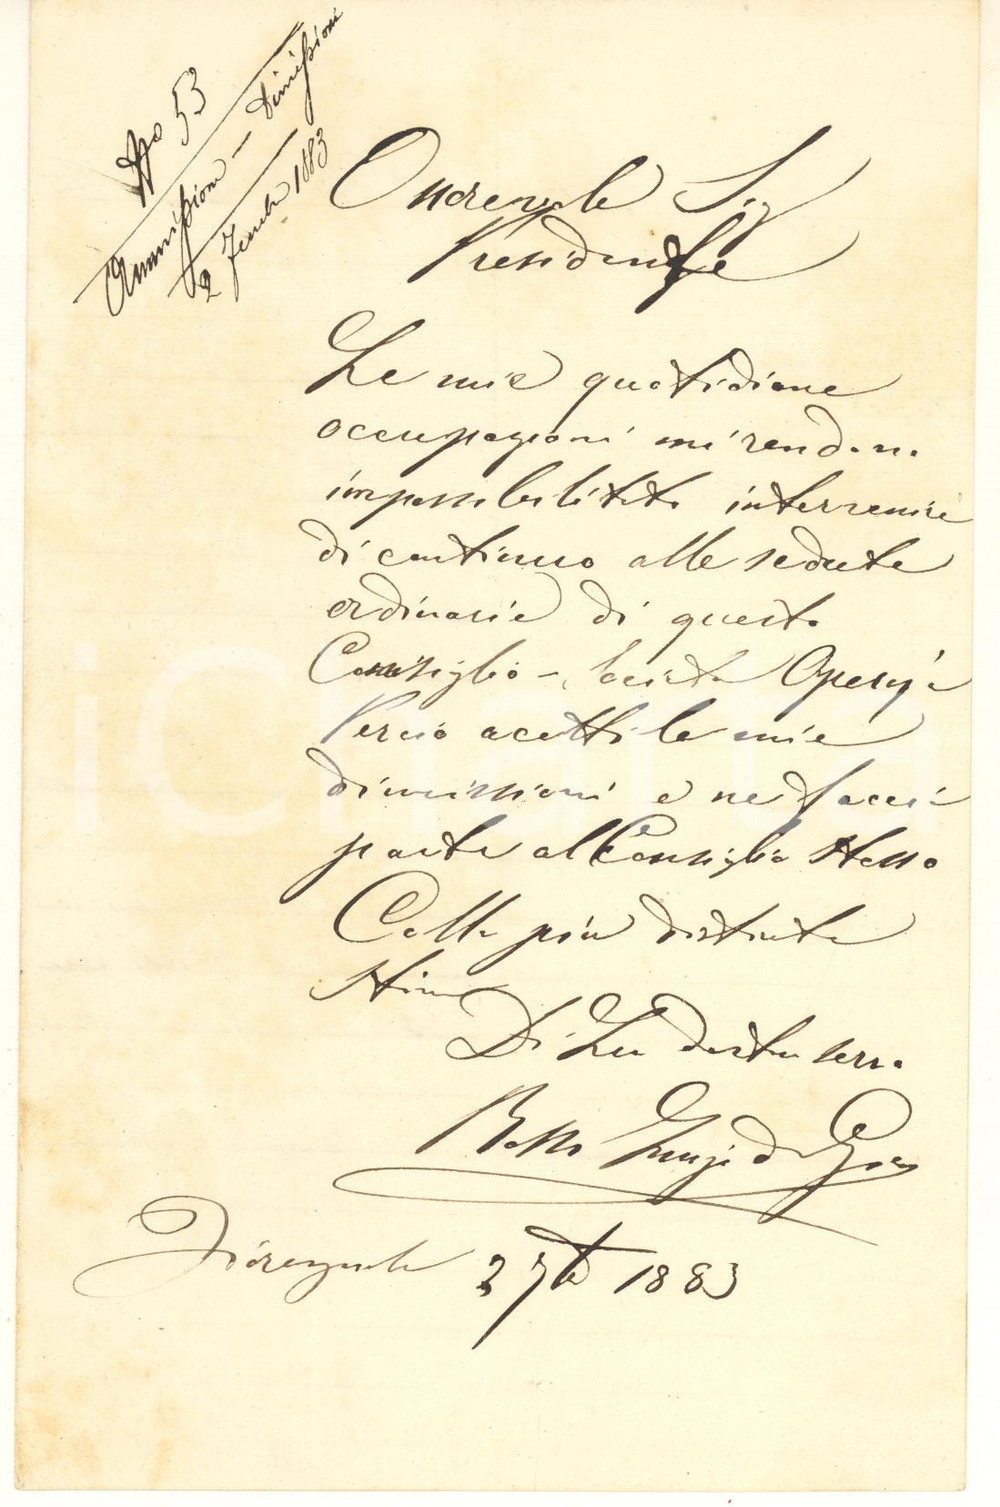 No 53
Ammissione - Dimissioni
2 1883
Onorevole Sig
Presidente
Le mie quotidiane
occupazioni mi rendono
impossibilitato intervenire
di continuo alle sedute
ordinarie di questo
Consiglio - Società Operaja
Perciò accetti le mie
dimissioni e ne facci
parte al Consiglio Stesso
Colla più distinta
Stima
Di Lei devotu serv.
Luigi
Fiorenzuola 2 7bre 1883
iCharta